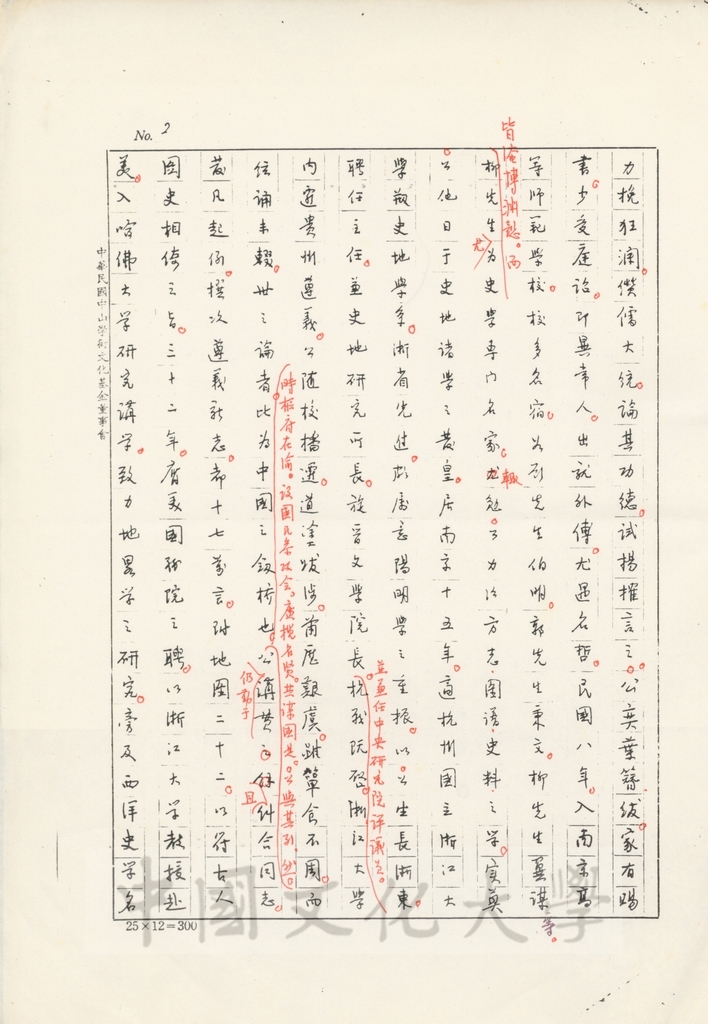 No. 2
力挽狂瀾。儐儒大統。論其功德。試揚搉言之。公奕葉簪紱。家有賜
書。少受庭詒。即異常人。出就外傅。尤遇名哲。民國八年。入南京高
等師範學校。校多名宿。如劉先生伯明。郭先生秉文。柳先生翼謀等。
皆淹博淵懿。而
柳先生尤為史學專門名家。輒勉公力治方志圖譜史料之學。實奠
公他日于史地諸學之發皇。居南京十五年。適杭州國立浙江大
學敬史地學系。浙省先進。邀屬意陽明學之重振。以公生長浙東。
聘任主任。兼史地研究所長。旋晉文學院長。
並兼任中央研究院評議員。
抗戰既啟。浙江大學
內遷貴州遵義。公隨校播遷。道塗跋涉。備歷艱虞。雖簞食不周。而
弦誦未輟。世之論者。比為中國之劍橋也。
時樞府在渝。設國民參政會。廣攬名賢。共謀國是。公與其列。然
公仍勤于講貫。且糾合同志。
發凡起例。撰次遵義新志。都十七萬言。附地圖二十二。以符古人
圖史相倚之旨。三十二年。膺美國國務院之聘。以浙江大學教授赴
美。入哈佛大學研究講學。致力地略學之研究。旁及西洋史學名
25×12=300
中華民國中山學術文化基金董事會
中國文化大學